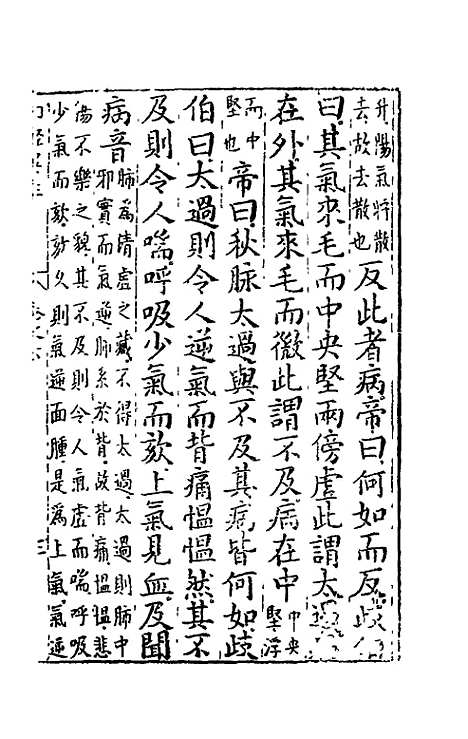 升陽氣將散
去故去散也
反此者病帝曰何如而反岐
曰其氣來毛而中央堅兩傍虛此謂太
在外其氣來毛而微此謂不及病在中
中央
堅浮
而中
堅也
帝曰秋脉太過與不及其病皆何如岐
伯曰太過則令人逆氣而背痛慍慍然其不
及則令人喘呼吸少氣而欬上氣見血及聞
病音
肺為清虛之藏不得太過太過則肺中
邪實而氣逆肺系於背故背痛慍慍悲
傷不樂之貌其不及則令人氣虛而喘呼吸
少氣而欬欬久則氣逆面腫是為上氣氣逆